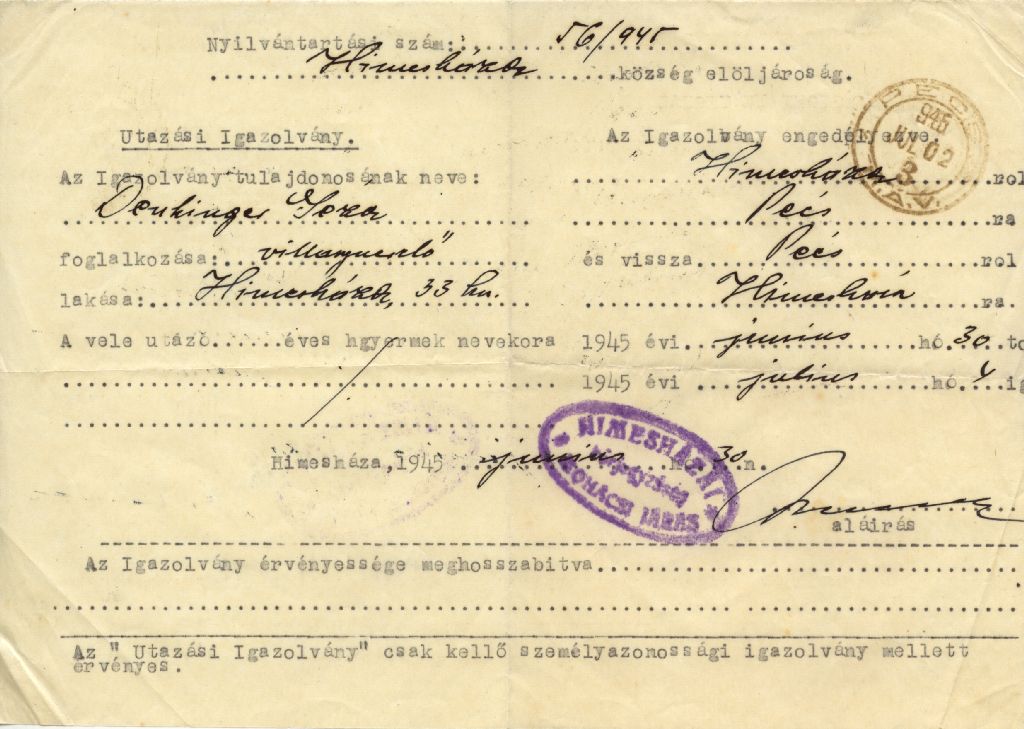 Nyilvántartási szám:.......56/945.............
......Himesháza.......község elöljáróság.
Utazási Igazolvány.
Az Igazolvány tulajdonosának neve:
Denhinger Geza
foglalkozása:..villanyszerelő"
lakása:..Himesháza, 33 hsz.
A vele utázó......éves hgyermek nevekora
Az Igazolvány engedélyezve.
Himesháza.....rol
Pécs.....ra
és vissza......Pécs......rol
Himesháza.....ra
1945 évi..junius....hó.30.to
1945 évi...julius....hó.4 ig
Himesháza, 1945 ..junius...hó 30.n.
aláirás
Az Igazolvány érvényessége meghosszabitva...............
Az " Utazási Igazolvány" csak kellő személyazonossági igazolvány mellett
érvényes.
PÉCS
945
JUL 02
3
M.A.V.
HIMESHÁZAI
MOHÁCSI JÁRÁS